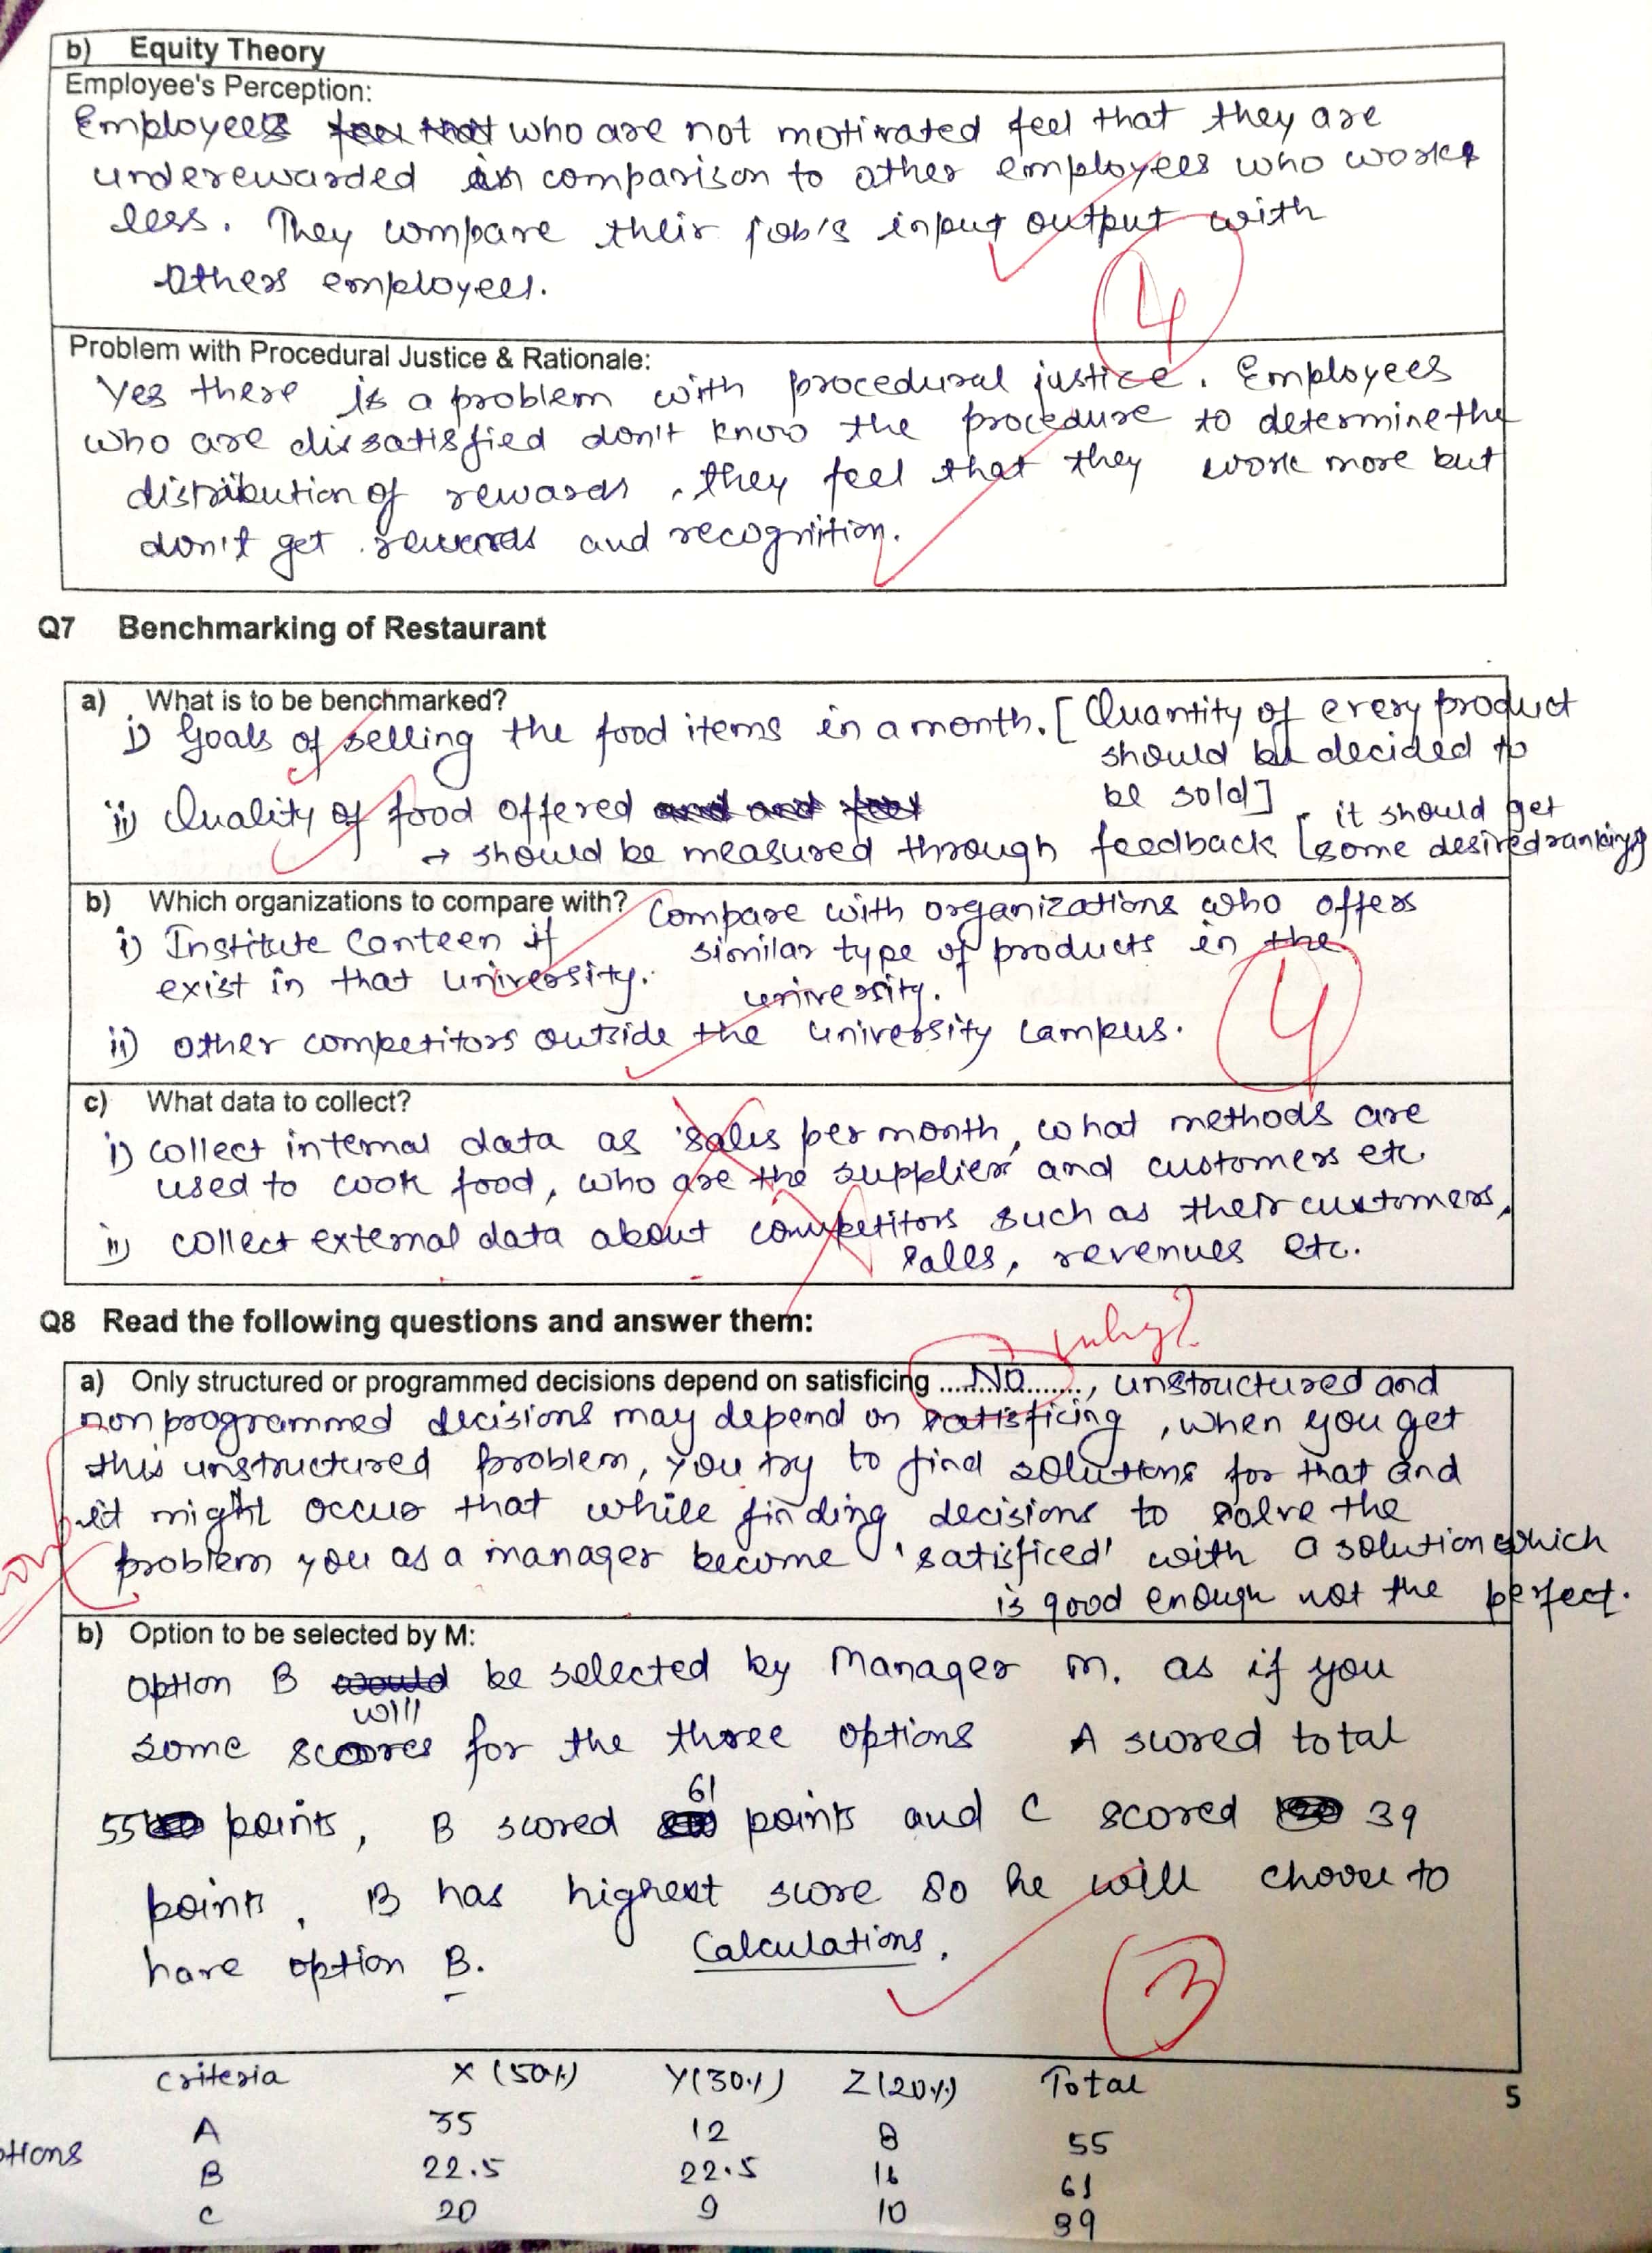 b) Equity Theory
Employee's Perception:
Employees who are not motivated feel that they are
underewarded in comparison to other employees who works
less. They compare their job's input output with
others employees.
4
Problem with Procedural Justice & Rationale:
Yes there is a problem with procedural justice. Employees
who are dissatisfied don't know the procedure to determine the
distribution of rewards, they feel that they work more but
don't get rewards and recognition.
Q7 Benchmarking of Restaurant
a) What is to be benchmarked?
i) Goals of selling the food items in a month. [Quantity of every product
should be decided to
be sold]
ii) Quality of food offered
→ should be measured through feedback [it should get
some desired rankings
b) Which organizations to compare with? Compare with organizations who offers
similar type of products in the
university.
i) Institute Canteen if
exist in that university.
ii) other competitors outside the university campus.
4
c) What data to collect?
i) collect internal data as sales per month, what methods are
used to cook food, who are the supplier and customers etc.
ii) collect external data about competitors such as their customers,
sales, revenues etc.
Q8 Read the following questions and answer them:
why?
a) Only structured or programmed decisions depend on satisficing ......NO......., unstructured and
non programmed decisions may depend on satisficing, when you get
this unstructured problem, you try to find solutions for that and
it might occur that while finding decisions to solve the
problem you as a manager become 'satisficed' with a solution which
is good enough not the perfect.
b) Option to be selected by M:
Option B will be selected by Manager M. as if you
some scores for the three options A scored total
55 points, B scored 61 points and C scored 39
points, B has highest score so he will choose to
have option B. Calculations.
3
Criteria X (50%) Y(30%) Z(20%) Total
5
A 35 12 8 55
B 22.5 22.5 16 61
C 20 9 10 39